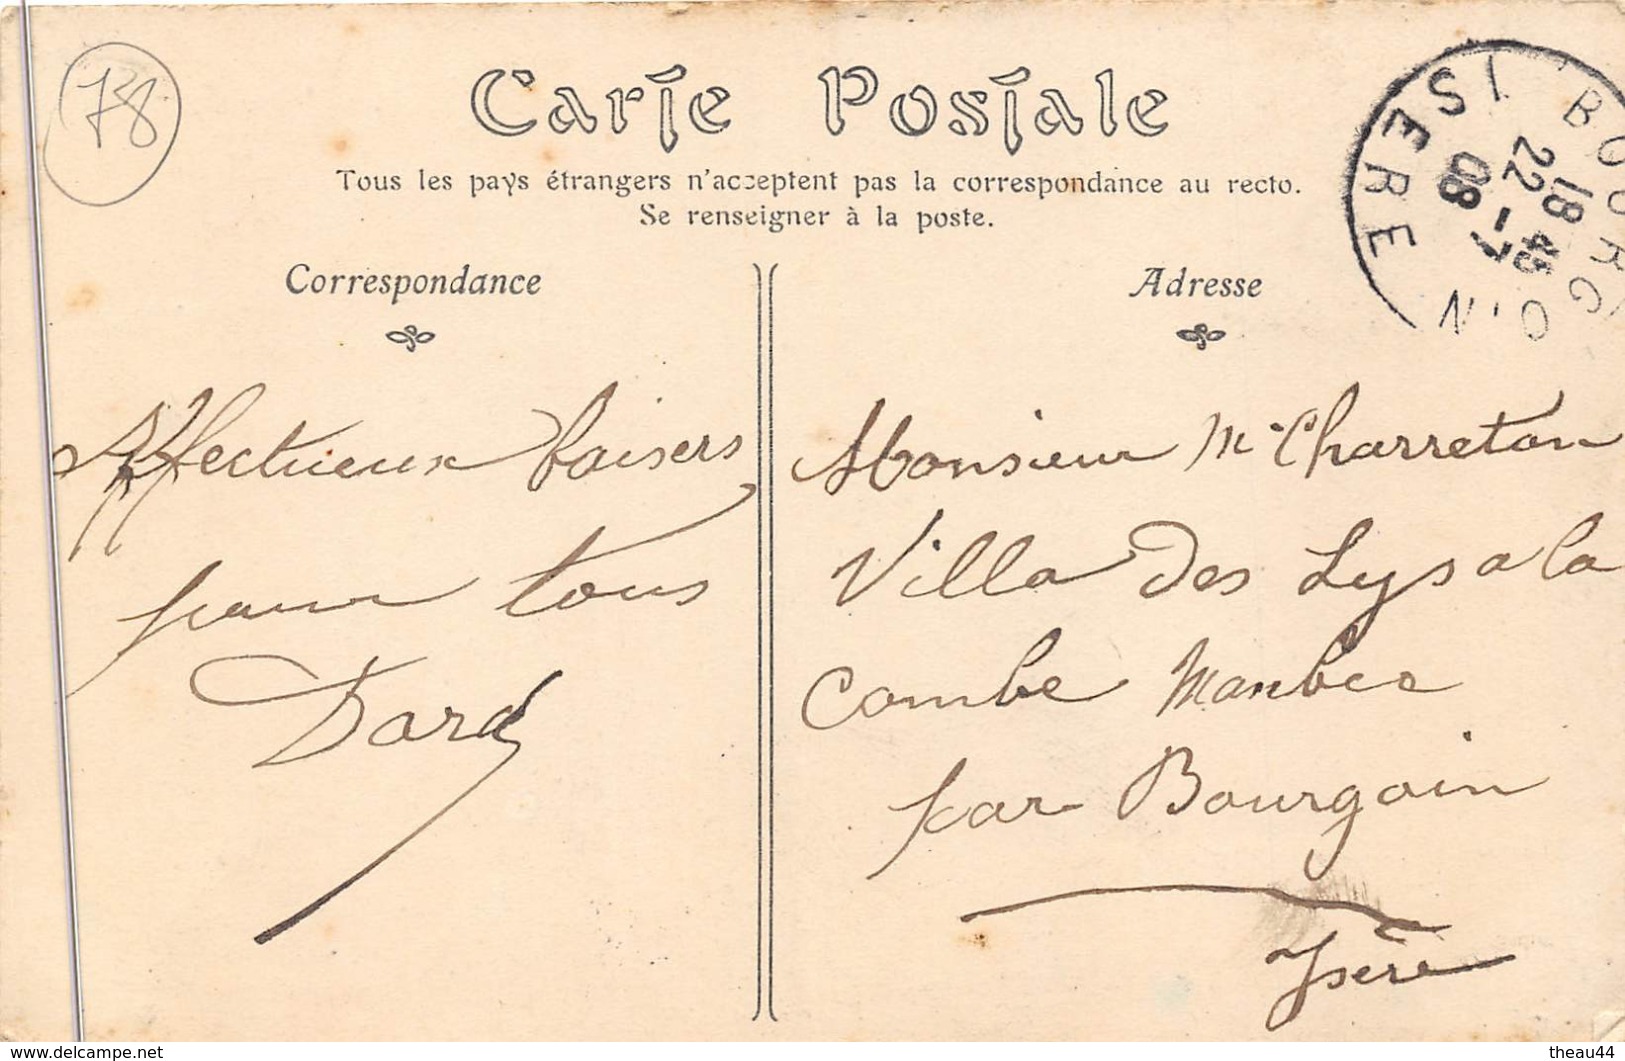 78
Carte Postale
Tous les pays étrangers n'acceptent pas la correspondance au recto.
Se renseigner à la poste.
BOURGOIN
18 45
22 -7
08
ISERE
Correspondance
Adresse
Affectueux baisers
pour tous
Dard
Monsieur Mce Charreton
Villa des Lys a la
Combe
par Bourgoin
Isère
www.delcampe.net
theau44